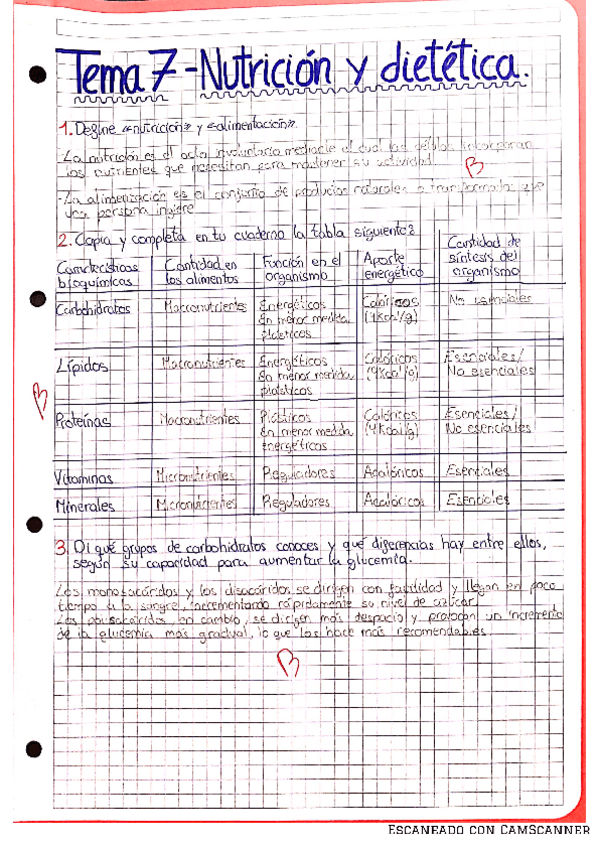 Tema 7 - Nutrición y dietética.
1. Define «nutrición» y «alimentación».
-La nutrición es el acto involuntario mediante el cual las células incorporan
los nutrientes que necesitan para mantener su actividad.
B
-La alimentación es el conjunto de productos naturales o transformados que
una persona ingiere
2. Copia y completa en tu cuaderno la tabla siguiente:
Características bioquímicas | Cantidad en los alimentos | Función en el organismo | Aporte energético | Cantidad de síntesis del organismo
Carbohidratos | Macronutrientes | Energéticos En menor medida plásticos | Calóricos (4Kcal/g) | No esenciales
Lípidos | Macronutrientes | Energéticos En menor medida plásticos | Calóricos (9Kcal/g) | Esenciales/ No esenciales
B
Proteínas | Macronutrientes | Plásticos En menor medida energéticos | Calóricos (4Kcal/g) | Esenciales/ No esenciales
Vitaminas | Micronutrientes | Reguladores | Acalóricos | Esenciales
Minerales | Micronutrientes | Reguladores | Acalóricos | Esenciales
3. Di qué grupos de carbohidratos conoces y qué diferencias hay entre ellos,
según su capacidad para aumentar la glucemia.
Los monosacáridos y los disacáridos se dirigen con facilidad y llegan en poco
tiempo a la sangre, incrementando rápidamente su nivel de azúcar.
Los polisacáridos, en cambio, se dirigen más despacio y provocan un incremento
de la glucemia más gradual, lo que los hace más recomendables.
B
ESCANEADO CON CAMSCANNER